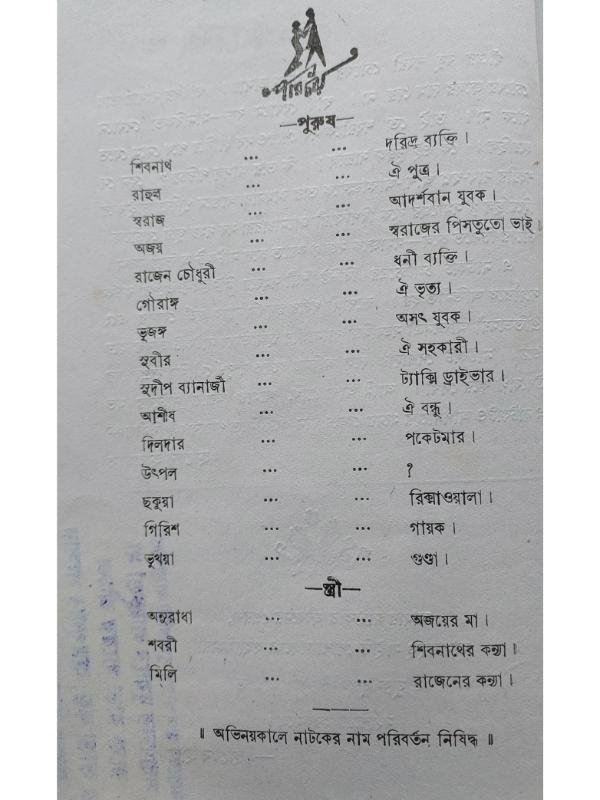 পরিচয়
—পুরুষ—
শিবনাথ ... ... দরিদ্র ব্যক্তি ।
রাহুল ... ... ঐ পুত্র ।
স্বরাজ ... ... আদর্শবান যুবক ।
অজয় ... ... স্বরাজের পিসতুতো ভাই ।
রাজেন চৌধুরী ... ... ধনী ব্যক্তি ।
গৌরাঙ্গ ... ... ঐ ভৃত্য ।
ভূজঙ্গ ... ... অসৎ যুবক ।
সুবীর ... ... ঐ সহকারী ।
সুদীপ ব্যানার্জী ... ... ট্যাক্সি ড্রাইভার ।
আশীষ ... ... ঐ বন্ধু ।
দিলদার ... ... পকেটমার ।
উৎপল ... ... ?
ছকুয়া ... ... রিক্সাওয়ালা ।
গিরিশ ... ... গায়ক ।
ভূথয়া ... ... গুণ্ডা ।
—স্ত্রী—
অনুরাধা ... ... অজয়ের মা ।
শবরী ... ... শিবনাথের কন্যা ।
মিলি ... ... রাজেনের কন্যা ।
॥ অভিনয়কালে নাটকের নাম পরিবর্তন নিষিদ্ধ ॥